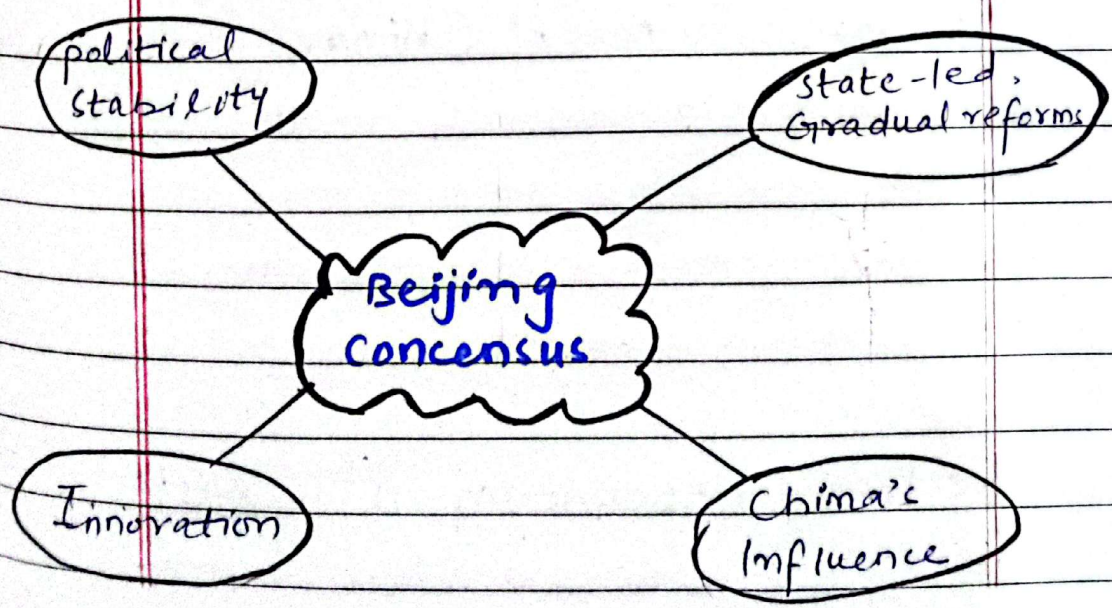 political
stability
state-led,
Gradual reforms
Beijing
Concensus
Innovation
China's
Influence